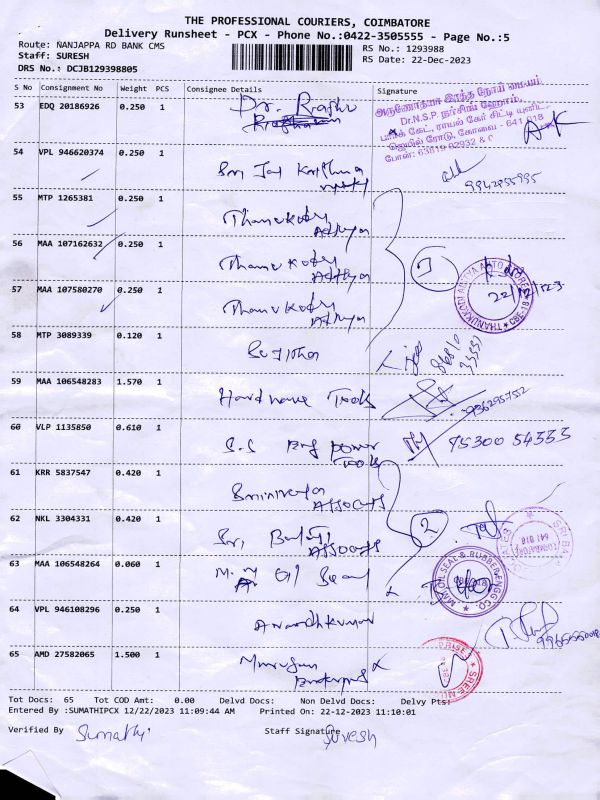 THE PROFESSIONAL COURIERS, COIMBATORE
Delivery Runsheet - PCX - Phone No.:0422-3505555 - Page No.:5
Route: NANJAPPA RD BANK CMS
RS No.: 1293988
Staff: SURESH
RS Date: 22-Dec-2023
DRS No.: DCJB129398805
S No Consignment No Weight PCS Consignee Details Signature
53 EDQ 20186926 0.250 1 Dr. Raghu
அருணோதயா இரத்த நோய் மையம்
Dr.N.S.P. நர்சிங் ஹோம்,
பார்க் கேட், ராயல் கேர் சிட்டி யூனிட்,
ஜெயில் ரோடு, கோவை - 641 018
போன்: 63819 02932 &
54 VPL 946620374 0.250 1 Sri Jai Krishna
9942255995
55 MTP 1265381 0.250 1 Thanukody
Adithya
56 MAA 107162632 0.250 1 Thanukody
Adithya
3
22/12/23
THANUKKODI ADITYA AUTO STORES CBE-18
57 MAA 107580270 0.250 1 Thanukody
Adithya
58 MTP 3089339 0.120 1 Sujitha
86810
33331
59 MAA 106548283 1.570 1 Hardware Tools
9362957552
60 VLP 1135850 0.610 1 S.S Eng power
Tools
95300 54333
61 KRR 5837547 0.420 1 Srinivasa
Assocats
62 NKL 3304331 0.420 1 Sri Balaji
Assocats
2
641 018
63 MAA 106548264 0.060 1 M. M Oil Seal
OIL SEAL & RUBBER ENGG CO.
64 VPL 946108296 0.250 1 Anandhkumar
65 AMD 27582065 1.500 1 Murugan
Enterprises
Tot Docs: 65 Tot COD Amt: 0.00 Delvd Docs: Non Delvd Docs: Delvy Pts:
Entered By :SUMATHIPCX 12/22/2023 11:09:44 AM Printed On: 22-12-2023 11:10:01
Verified By Sumathi Staff Signature Suresh